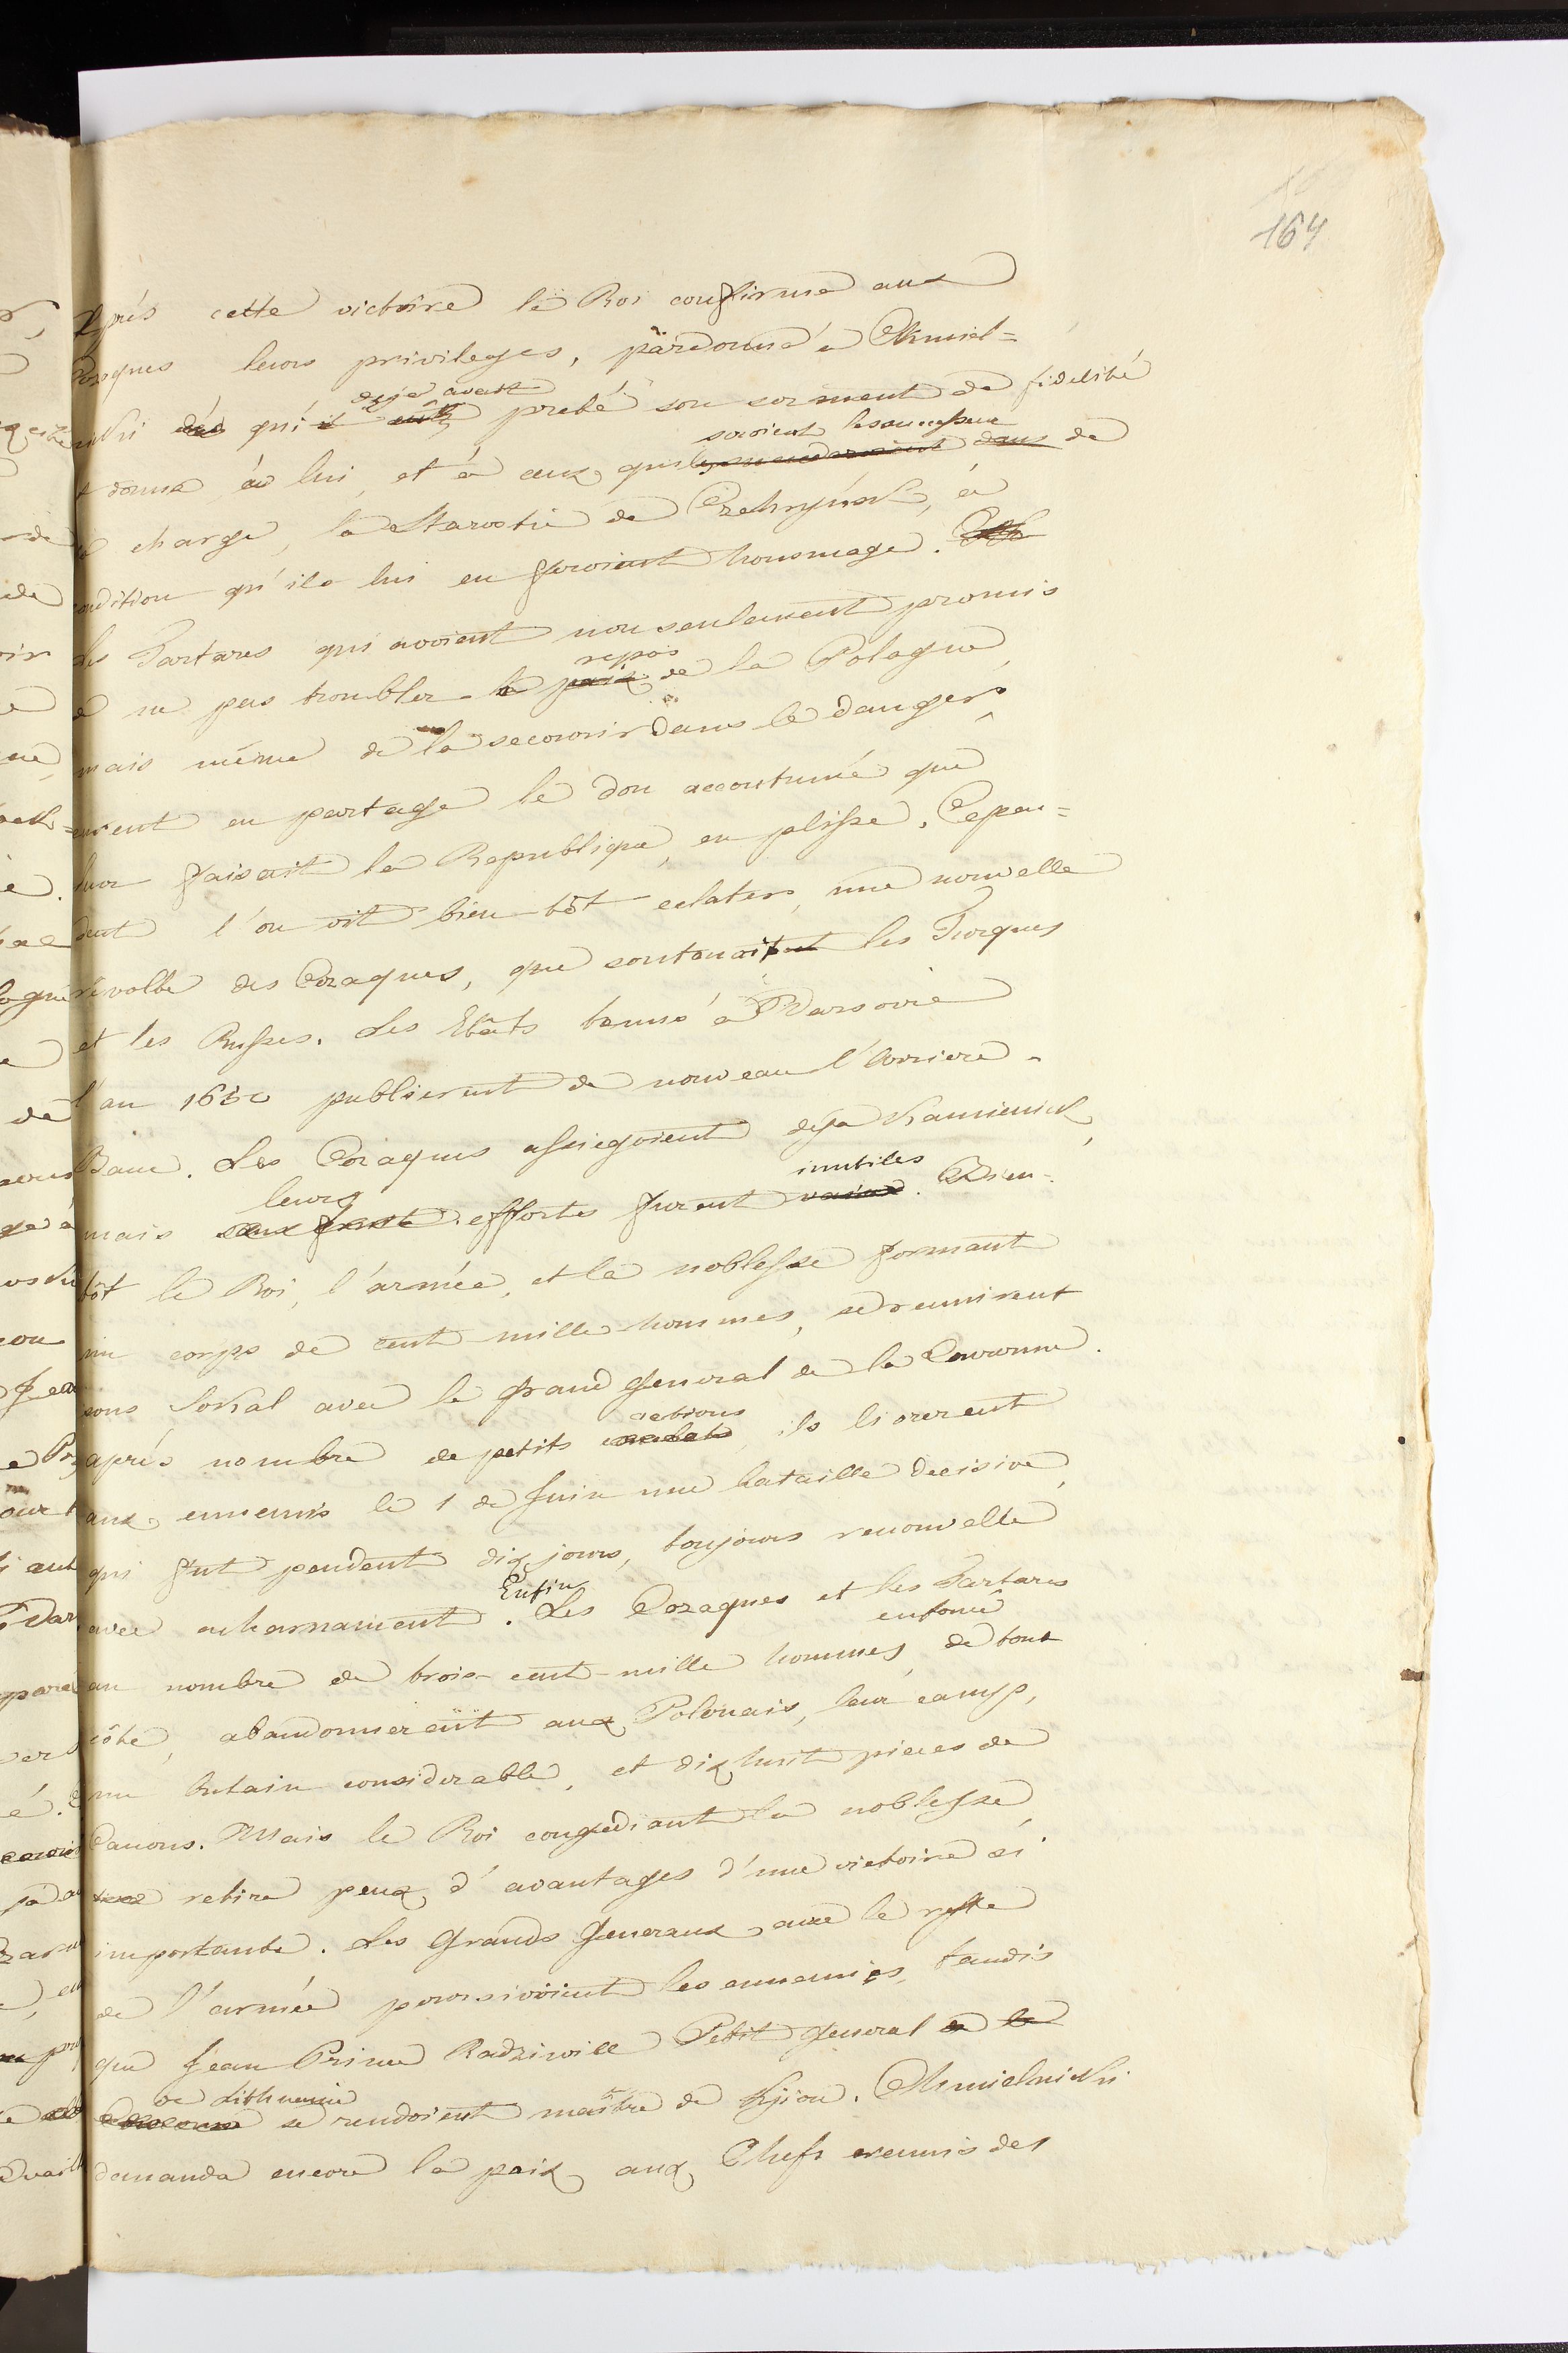 164
Aprés cette victoire le Roi confirma aux
Cozaques leurs privileges, pardonna à Chmiel=
nicki qui deja avait preté son serment de fidelité
et donna à lui, et à ceux qui seroient les successeurs de
sa charge, la Starostie de Czehrynsk, à
condition qu'ils lui en feroient hommage.
Les Tartares qui avoient non seulement promis
de ne pas troubler le repos de la Pologne,
mais même de la secourir dans le danger,
eurent en partage le don accoutumé que
leur faisait la Republique, en plisse. Cepen=
dent l'on vit bien-tôt eclater, une nouvelle
revolte des Cozaques, que soutenait les Turques
et les Russes. Les Etâts tenus à Varsovie
l'an 1650 publierent de nouveau l'Arriere-
Banc. Les Cozaques assiegoient deja Kamieniek,
mais leurs efforts furent inutiles. Bien-
tôt le Roi, l'armée, et la noblesse formant
un corps de cent mille hommes, se reunirent
sous Sokal avec le grand general de la Couronne.
aprés nombre de petits actions, ils livrerent
aux ennemis le 1 de Juin une bataille decisive,
qui fut pendent dix jours, toujours renouvellé
avec acharnament. Enfin Les Cozaques et les Tartares
au nombre de trois-cent-mille hommes, entouré de tout
côté, abandonnerent aux Polonais, leur camp,
un butain considerable, et dixhuit pieces de
Canons. Mais le Roi congediant la noblesse,
retira peux d'avantages d'une victoire si
importante. Les Grands Generaux avec le reste
de l'armée poursivoient les ennemies, tandis
que Jean Prince Radziwill Petit general
de Lithuanie se rendoient maître de Kjiow. Chmielnicki
demanda encore la paix aux Chefs reunis des